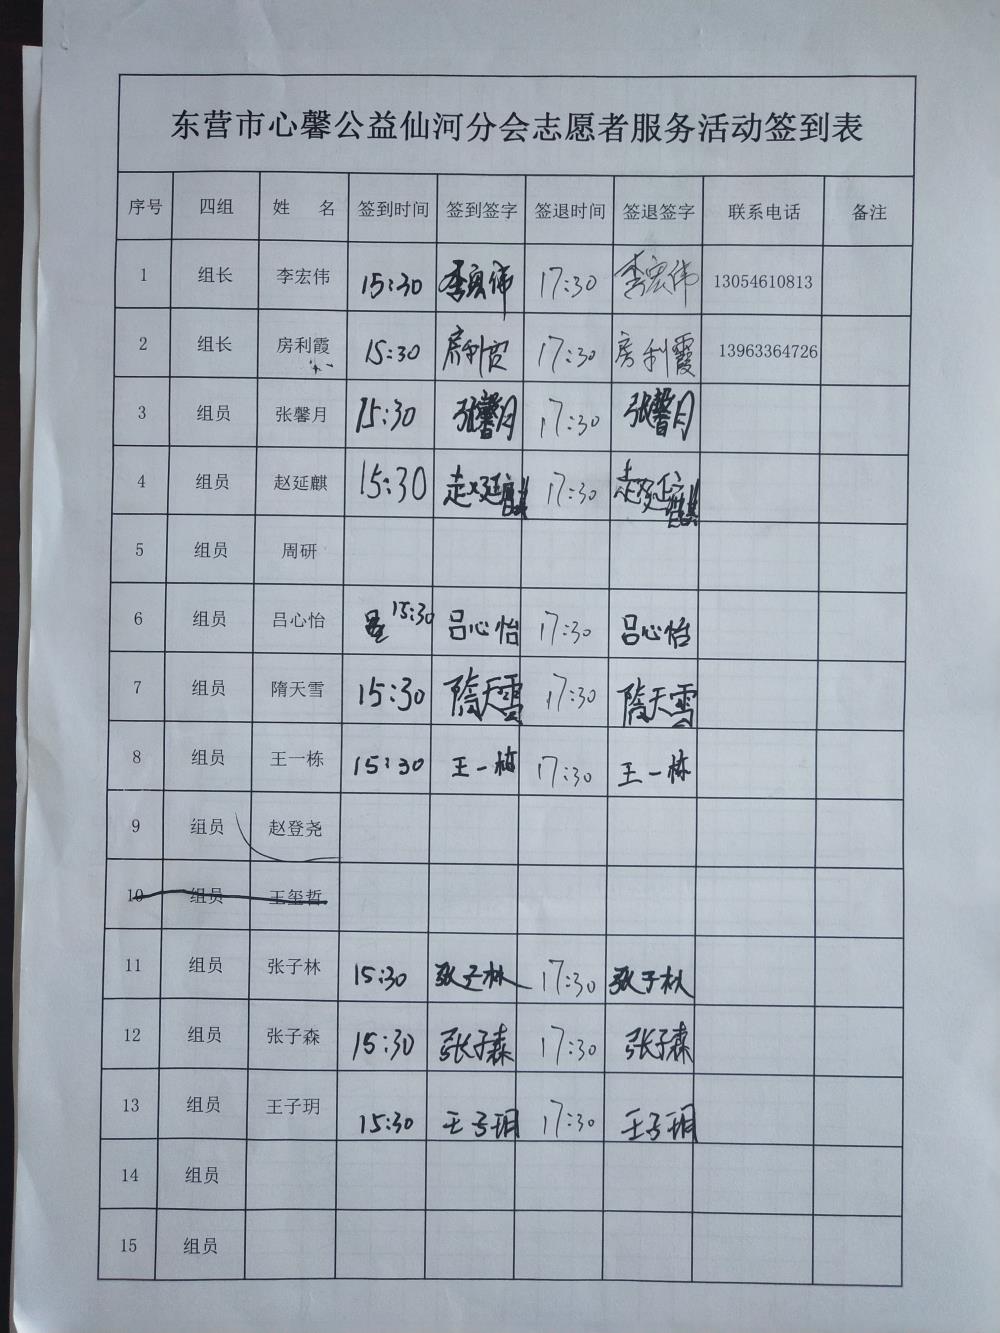 东营市心馨公益仙河分会志愿者服务活动签到表
序号 四组 姓 名 签到时间 签到签字 签退时间 签退签字 联系电话 备注
1 组长 李宏伟 15:30 李宏伟 17:30 李宏伟 13054610813
2 组长 房利霞 15:30 房利霞 17:30 房利霞 13963364726
3 组员 张馨月 15:30 张馨月 17:30 张馨月
4 组员 赵延麒 15:30 赵延麒 17:30 赵延麒
5 组员 周研
6 组员 吕心怡 15:30 吕心怡 17:30 吕心怡
7 组员 隋天雪 15:30 隋天雪 17:30 隋天雪
8 组员 王一栋 15:30 王一栋 17:30 王一栋
9 组员 赵登尧
10 组员 王玺哲
11 组员 张子林 15:30 张子林 17:30 张子林
12 组员 张子森 15:30 张子森 17:30 张子森
13 组员 王子玥 15:30 王子玥 17:30 王子玥
14 组员
15 组员